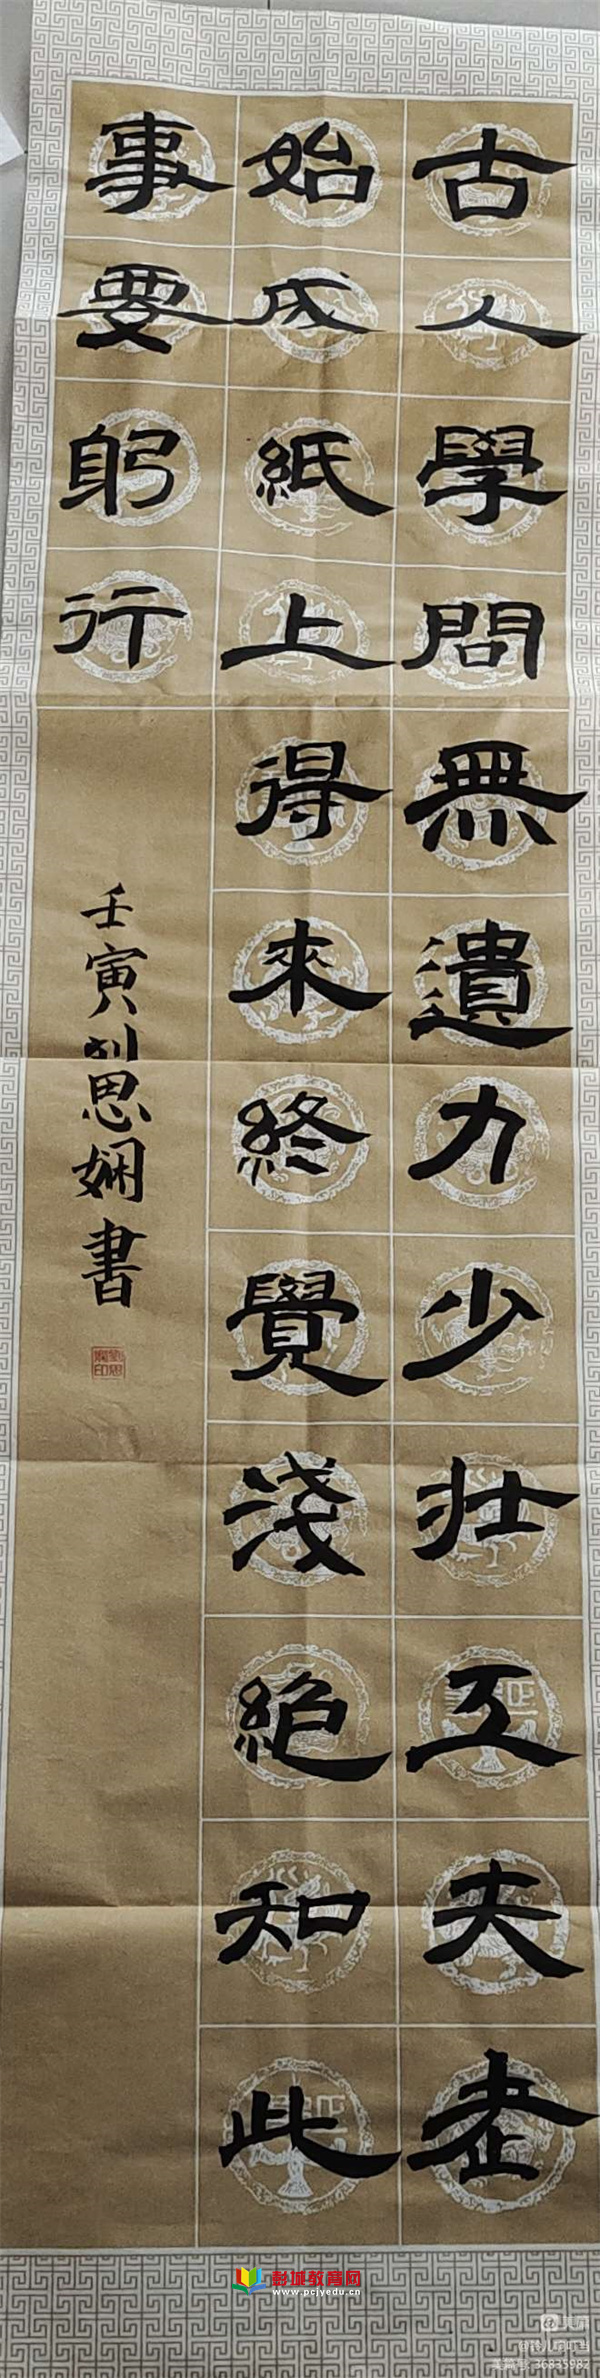 古人學問無遺力少壯工夫老
始成紙上得來終覺淺絕知此
事要躬行
壬寅刘思娴書
彭城教育网
www.pcjyedu.cn
美篇
美篇号: 36835982